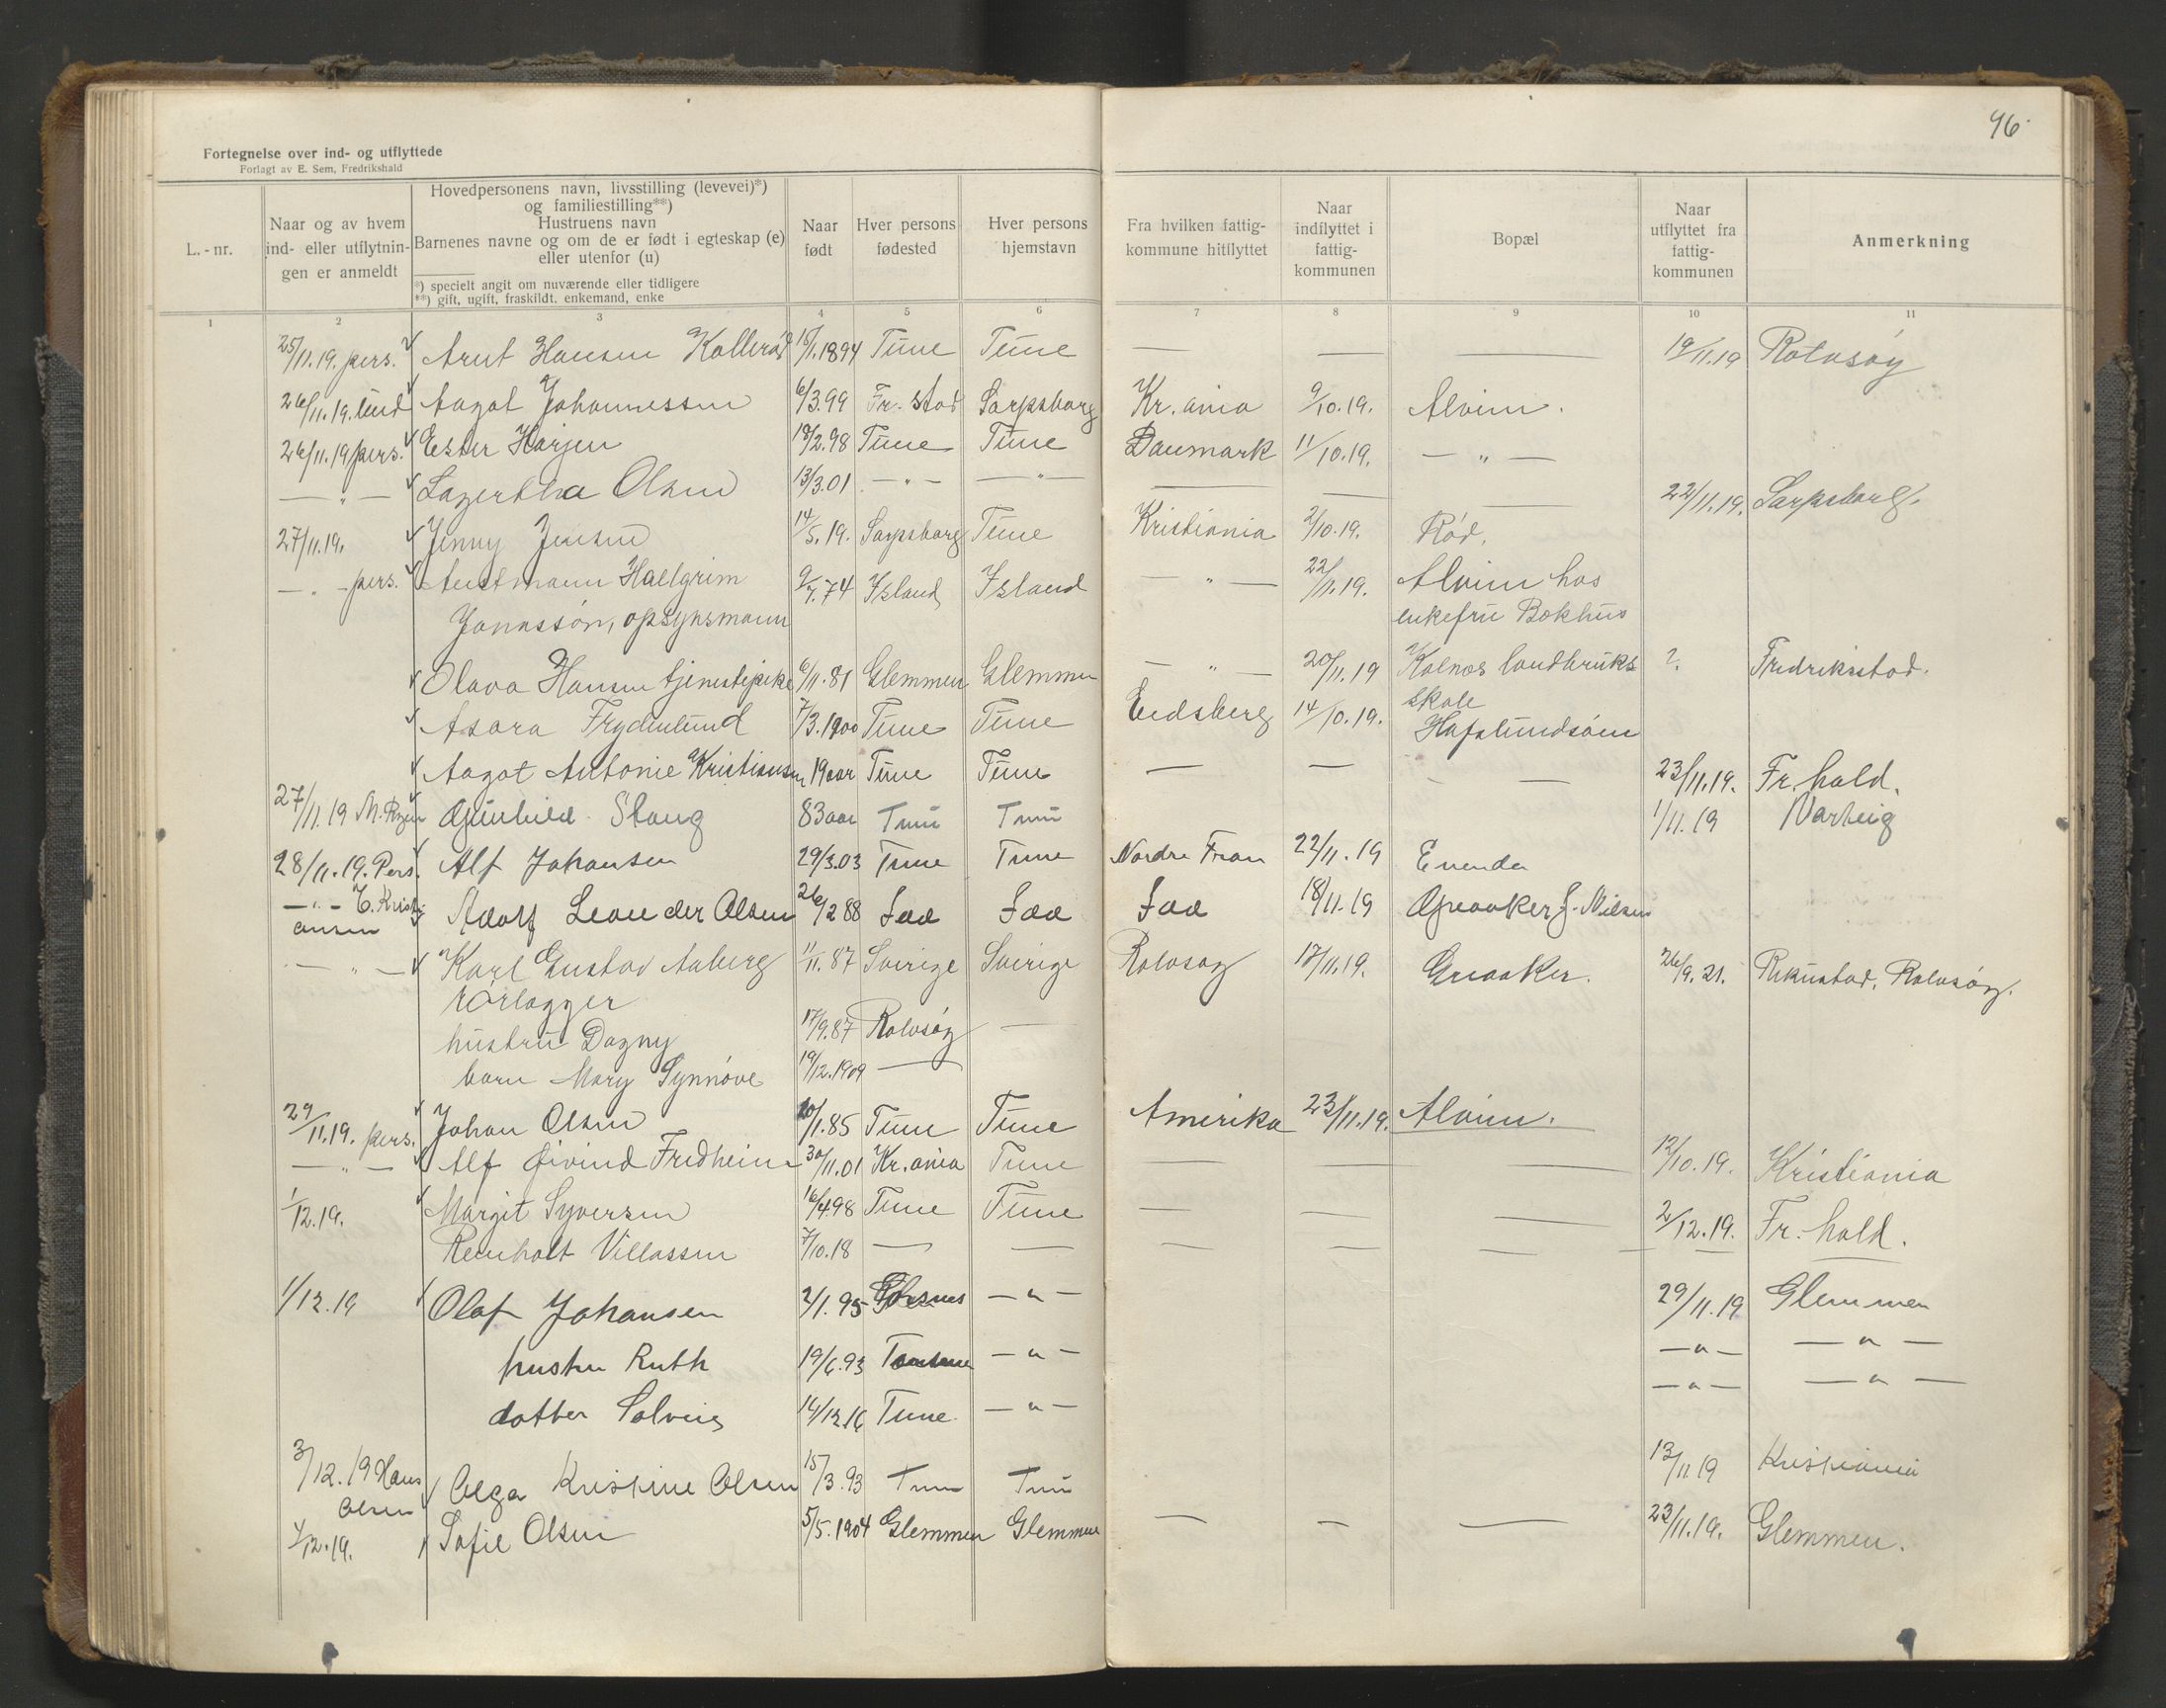 96
Fortegnelse over ind- og utflyttede
Forlagt av E. Sem, Fredrikshald
L.-nr.
Naar og av hvem ind- eller utflytningen er anmeldt
Hovedpersonens navn, livsstilling (levevei)*)
og familiestilling**)
Hustruens navn
Barnenes navne og om de er født i egteskap (e)
eller utenfor (u)
*) specielt angit om nuværende eller tidligere
**) gift, ugift, fraskildt, enkemand, enke
Naar født
Hver persons fødested
Hver persons hjemstavn
Fra hvilken fattigkommune hitflyttet
Naar indflyttet i fattigkommunen
Bopæl
Naar utflyttet fra fattigkommunen
Anmerkning
1 2 3 4 5 6 7 8 9 10 11
25/11.19. pers. Arnt Hansen Kollerød 1894 Tune Tune — — — 19/11.19 Rolvsøy
26/11.19. Aagot Johannessen 6/3.99 Fr.stad Sarpsborg Kr.ania 9/10.19. Alvim.
26/11.19 pers. Ester Harjen 2.98 Tune Tune Danmark 11/10.19. — " —
— " — Lagertha Olsen 13/3.01 — " — — " — — — — 22/11.19. Sarpsborg.
27/11.19. Jenny Jensen 14/5.19. Sarpsborg Tune Kristiania 2/10.19. Rød.
— " — pers. Austmann Hallgrim 9/7.74 Island Island — " — 22/11.19. Alvim hos
Jonassøn, opsynsmann enkefru Bokhus
Olava Hansen tjenestepike 6/11.81 Glemmen Glemmen — " — 20/11.19 Kalnes landbruks ?. Fredriksstad.
skole
Asora Frydenlund 7/3.1900 Tune Tune Eidsberg 14/10.19. Hafslundsøen
Aagot Antonie Kristiansen 19 aar Tune Tune — — — 23/11.19. Fr.hald.
27/11.19 Gunhild Stang 83 aar Tune Tune 1/11.19 Varteig
28/11.19. Pers. Alf Johansen 29/3.03 Tune Tune Nordre Fron 22/11.19 Enenda
— " — E. Kristiansen Adolf Leander Olsen 26/2 88 18/11.19 Greaaker J. Nilsen
— " — Karl Gustav Aaberg 11/11.87 Sverige Sverige Rolvsøy 17/11.19. Greaaker. 26/9.21. Rolvsøy.
rørlægger
hustru Dagny 17/9.87 Rolvsøy —
barn Mary Synnøve 19/12.1909 —
29/11.19. pers. Johan Olsen 20/1.85 Tune Tune Amerika 23/11.19. Alvim.
— " — Alf Øivind Fredheim 30/11.01 Kr.ania Tune — — — 12/10.19. Kristiania
1/12.19. Margit Syversen 16/4.98 Tune Tune — — — 2/12.19. Fr.hald.
Reinholt Villassen 7/10.18 — — — — — — —
1/12.19 Olaf Johansen 2/1.95 — " — 29/11.19 Glemmen
hustru Ruth 19/6.93 — " — — " — — " —
datter Solveig 14/12 16 Tune — " — — " — — " —
3/12.19 Hans Olsen Olga Kristine Olsen 15/3.93 Tune Tune 13/11 19 Kristiania
4/12.19. Sofie Olsen 5/5.1904 Glemmen Glemmen — — — 23/11.19. Glemmen.